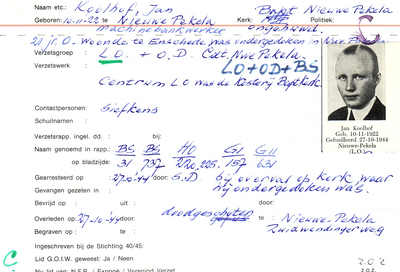 Naam etc.: Koolhof, Jan
Geboren: 10-11-22 te Nieuwe Pekela Kerk: Bapt Nieuwe Pekela Politiek:
machinebankwerker ongehuwd.
21 jr. O. Woonde te Enschede was ondergedoken in Nwe Pekela
Verzetsgroep : L.O. + O.D. Cdt. Nwe Pekela
Verzetswerk : LO + OD + BS
Centrum LO was de Kosterij Baptkerk.
Contactpersonen: Siefkens
Schuilnaam :
Verzetsrapp. ingel. dd. : bij:
Naam genoemd in rapp.: BS BS HO GI GII
op bladzijde: 31 737 225. 157 631
Gearresteerd op : 27-10-44 door: S.D bij overval op Kerk, waar
Gevangen gezeten in : hij ondergedoken was.
Bevrijd op : uit : door :
Overleden op : 27-10-44 door: doodgeschoten te : Nieuwe-Pekela
Begraven op : te : Zuidwendingerweg
Ingeschreven bij de Stichting 40/45:
Lid G.O.I.W. geweest: Ja / Neen
C
C
Jan Koolhof
Geb. 10-11-1922
Gefusilleerd 27-10-1944
Nieuwe-Pekela
(L.O.)